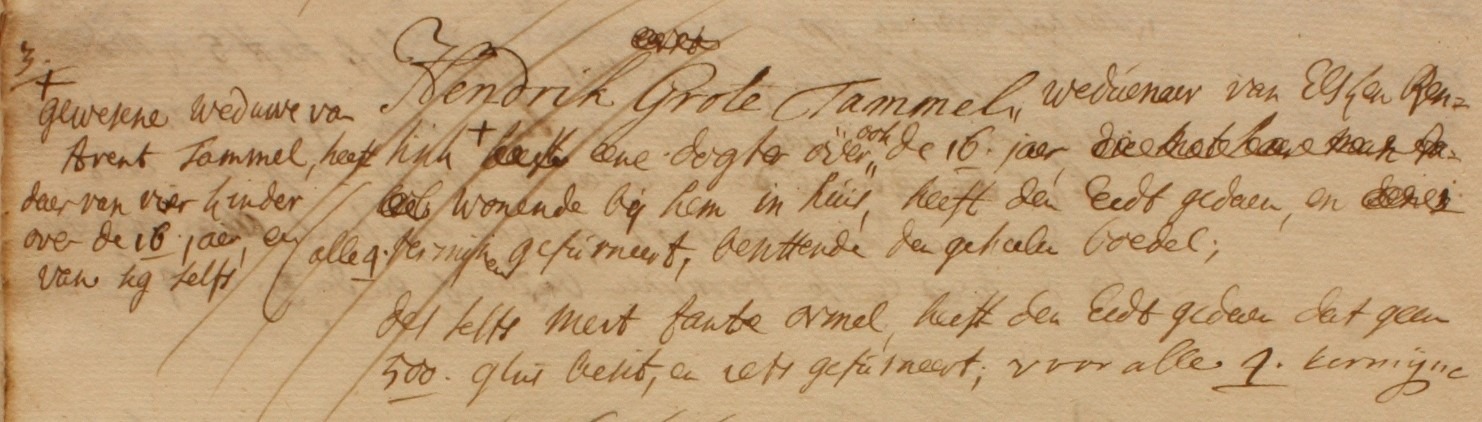 3.
+
gewesene weduwe van
Arent Tammel, heeft
daer van vier kinder
over de 16. jaer, en
van sig selfs
Hendrik Grote Tammel, weduenaer van Elsken
+ eene dogter over ook de 16. jaer
wonende bij hem in huis, heeft den Eedt gedaen, en
alle 4. termijnen gefurneert, besittende den geheelen boedel;
des selfs heeft den Eedt gedaen dat geen
500. glns besit, en iets gefurneert; voor alle 4. termijne